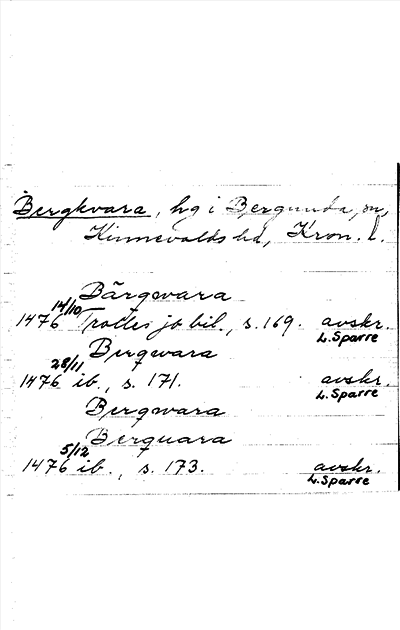 Bergkvara, hg i Bergunda sn,
Kinnevalds hd, Kron. l.
Bärgqvara
14/10
1476 Trolles jb bil., s. 169. avskr.
L. Sparre
Bergqvara
28/11
1476 ib., s. 171. avskr.
L. Sparre
Bergqvara
Berquara
5/12
1476 ib., s. 173. avskr.
L. Sparre